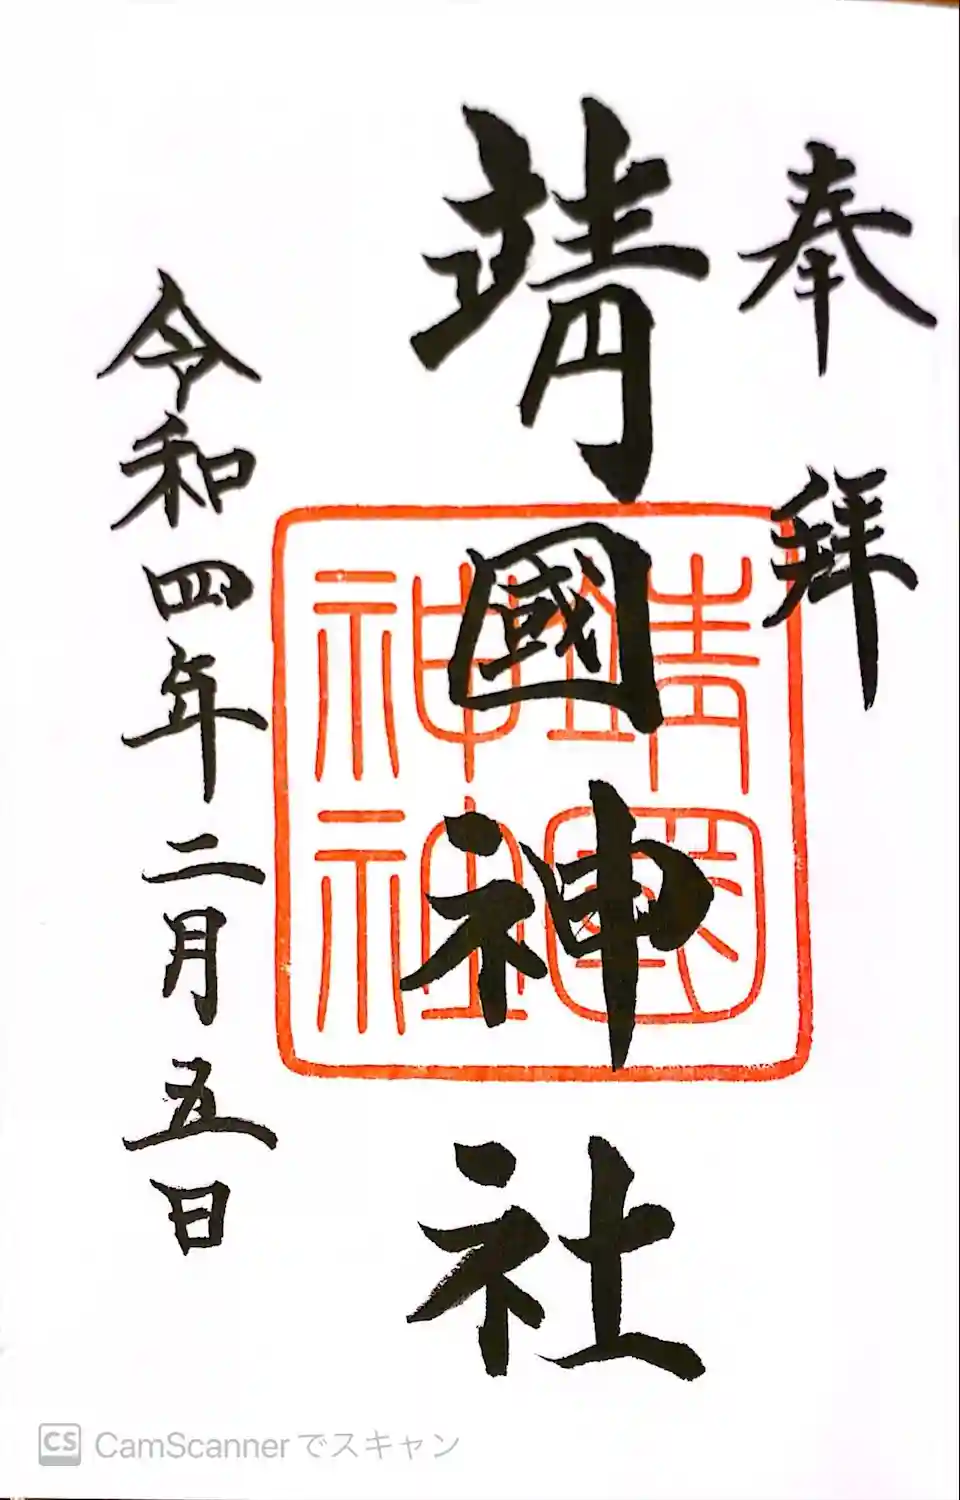 奉拜
靖國神社
令和四年二月五日
靖國
神社
CS CamScannerでスキャン